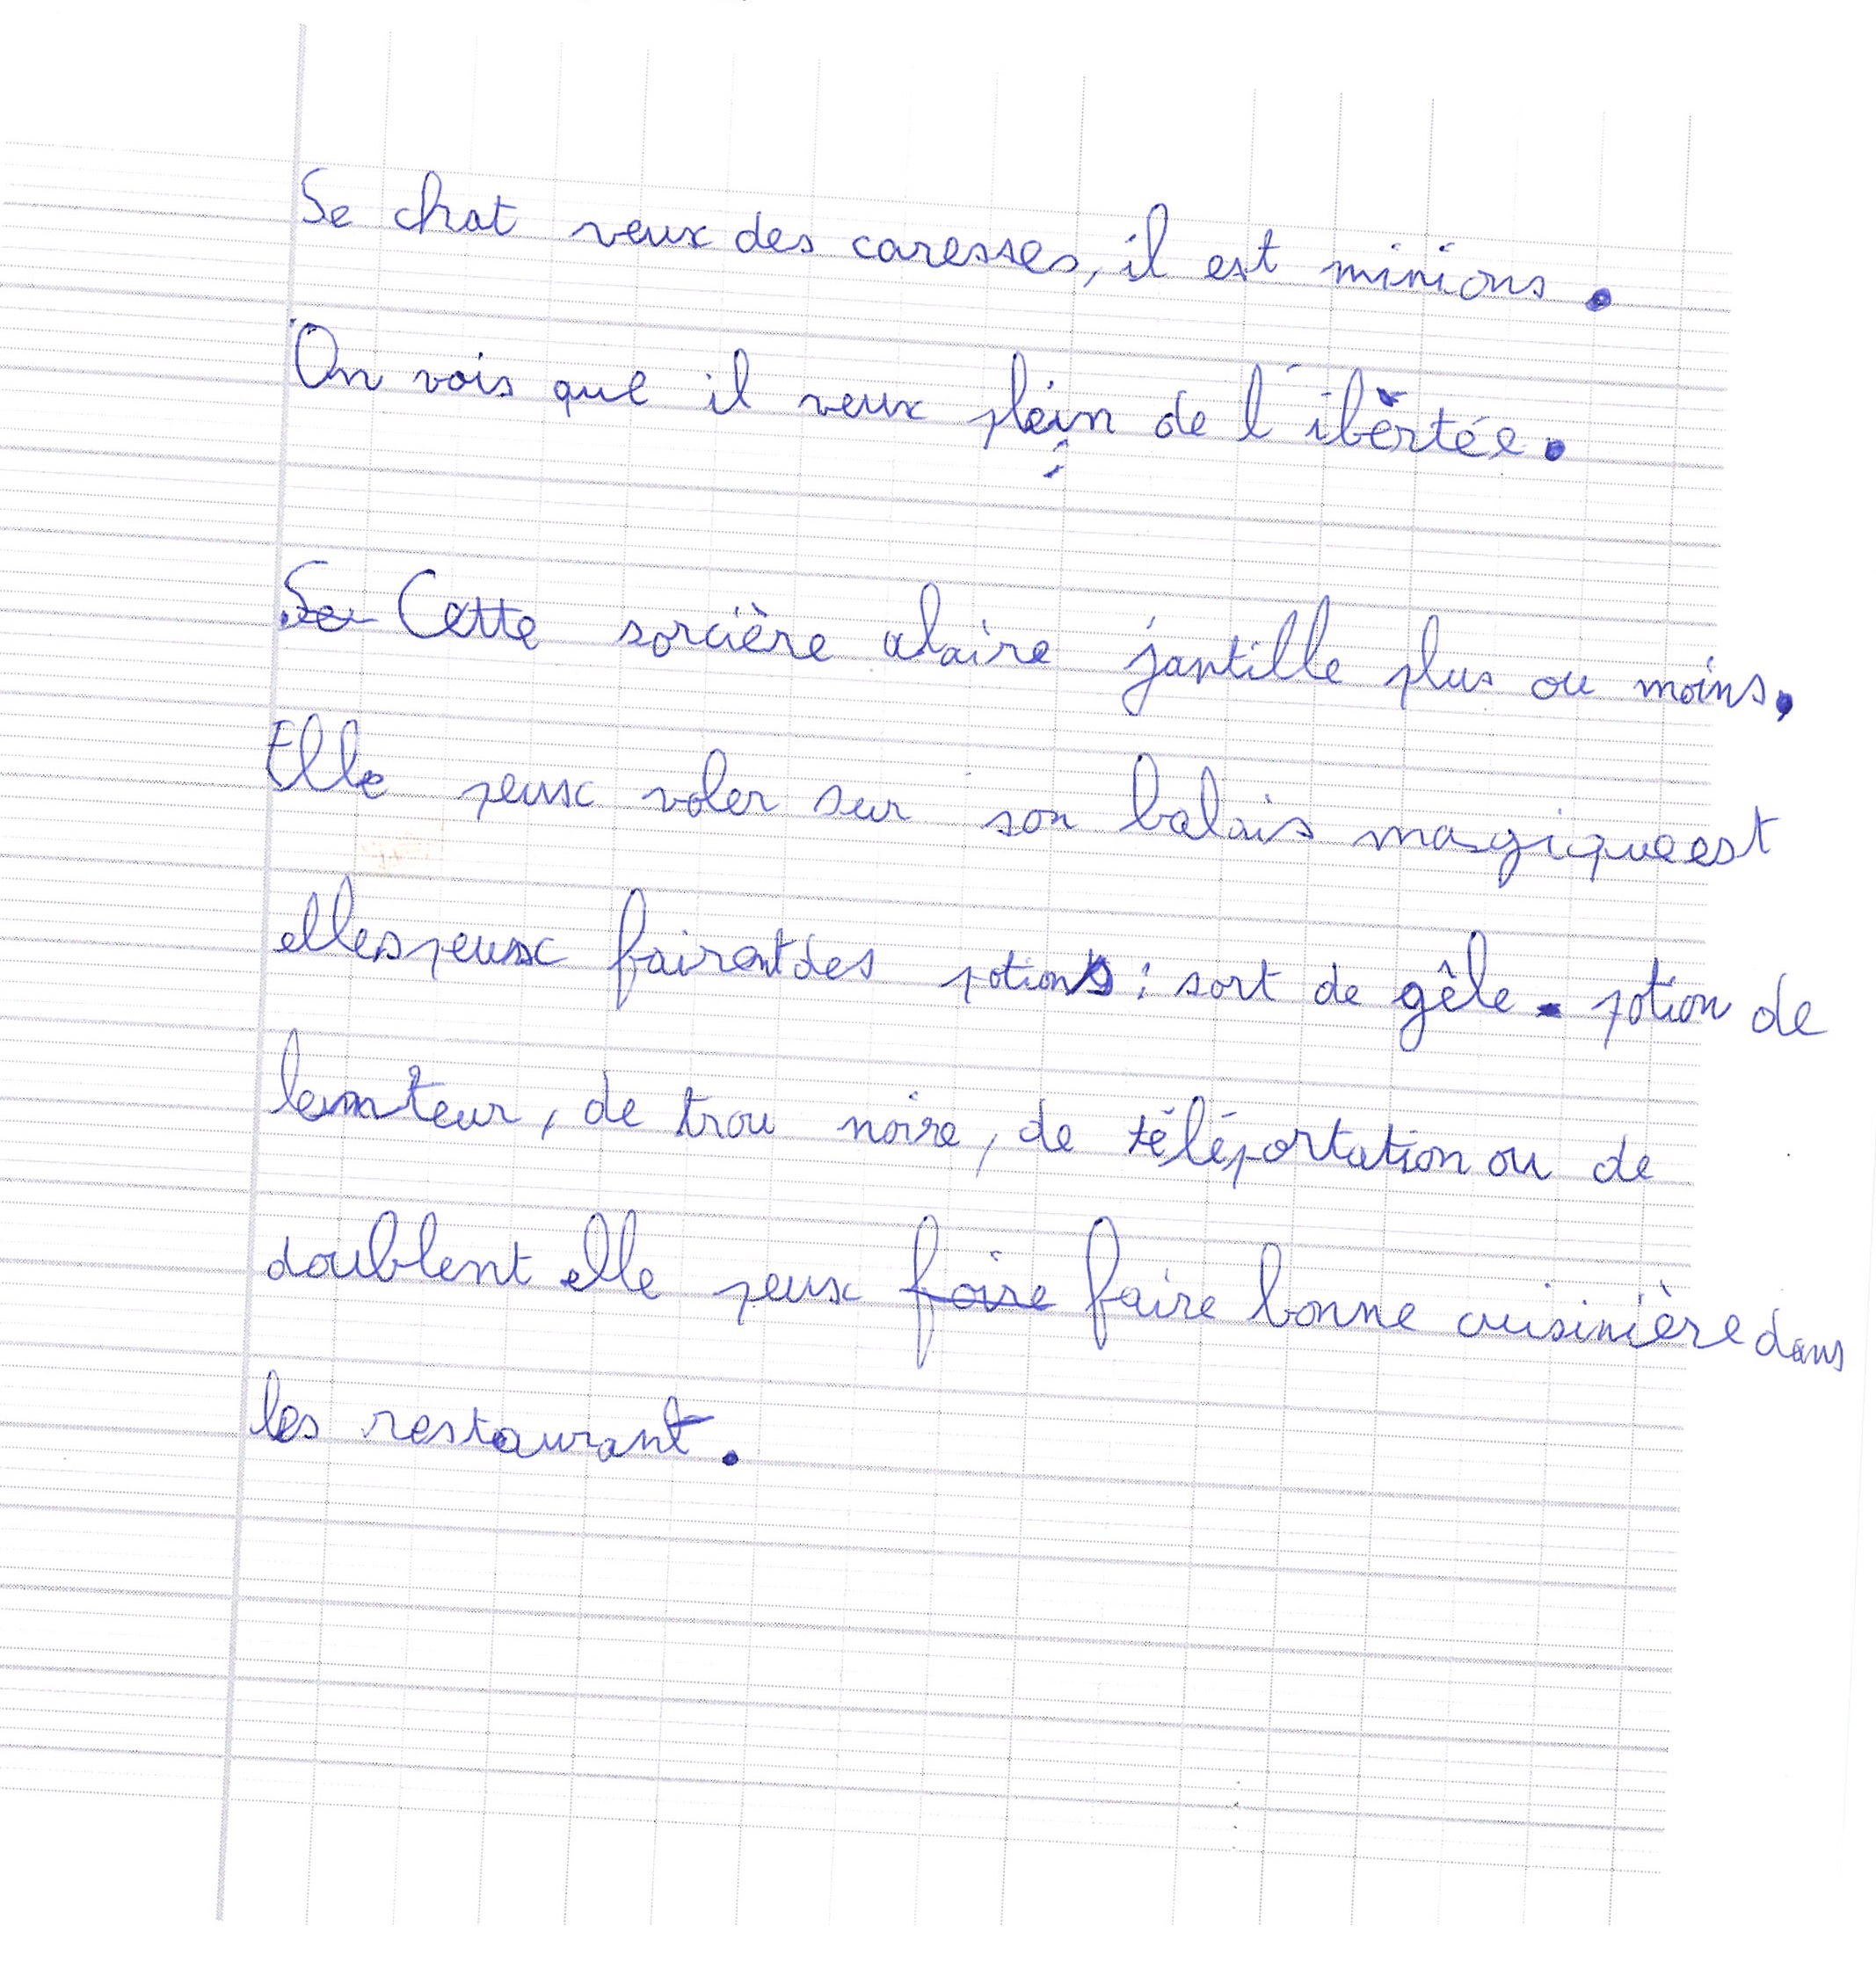 Se chat veux des caresses, il est minions.
On vois que il veux plein de l'ibertée.
Se Cette sorcière alaire jantille plus ou moins.
Elle peux voler sur son balais magique est
elles peux fairent des potions : sort de gêle - potion de
lenteur, de trou noire, de téléportation ou de
doublent elle peux foire faire bonne cuisinière dans
les restaurant.